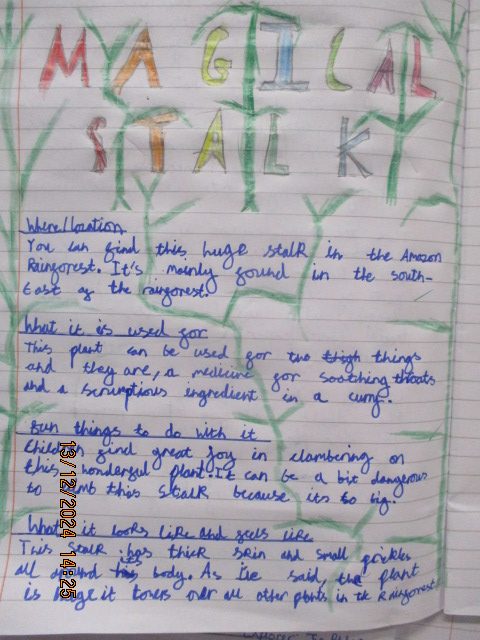 MAGICAL
STALK
Where/location
You can find this huge stalk in the Amazon
Rainforest. It's mainly found in the south-
East of the rainforest.
What it is used for
This plant can be used for two thigh things
and they are, a medicine for soothing throats
and a scrumptious ingredient in a curry.
Fun things to do with it
Children find great joy in clambering on
this wonderful plant. It can be a bit dangerous
to climb this stalk because its so big.
What it looks like and feels like
This stalk has thick skin and small prickles
all around its body. As I've said, the plant
is huge it towers over all other plants in the Rainforest!
13/12/2024 14:25